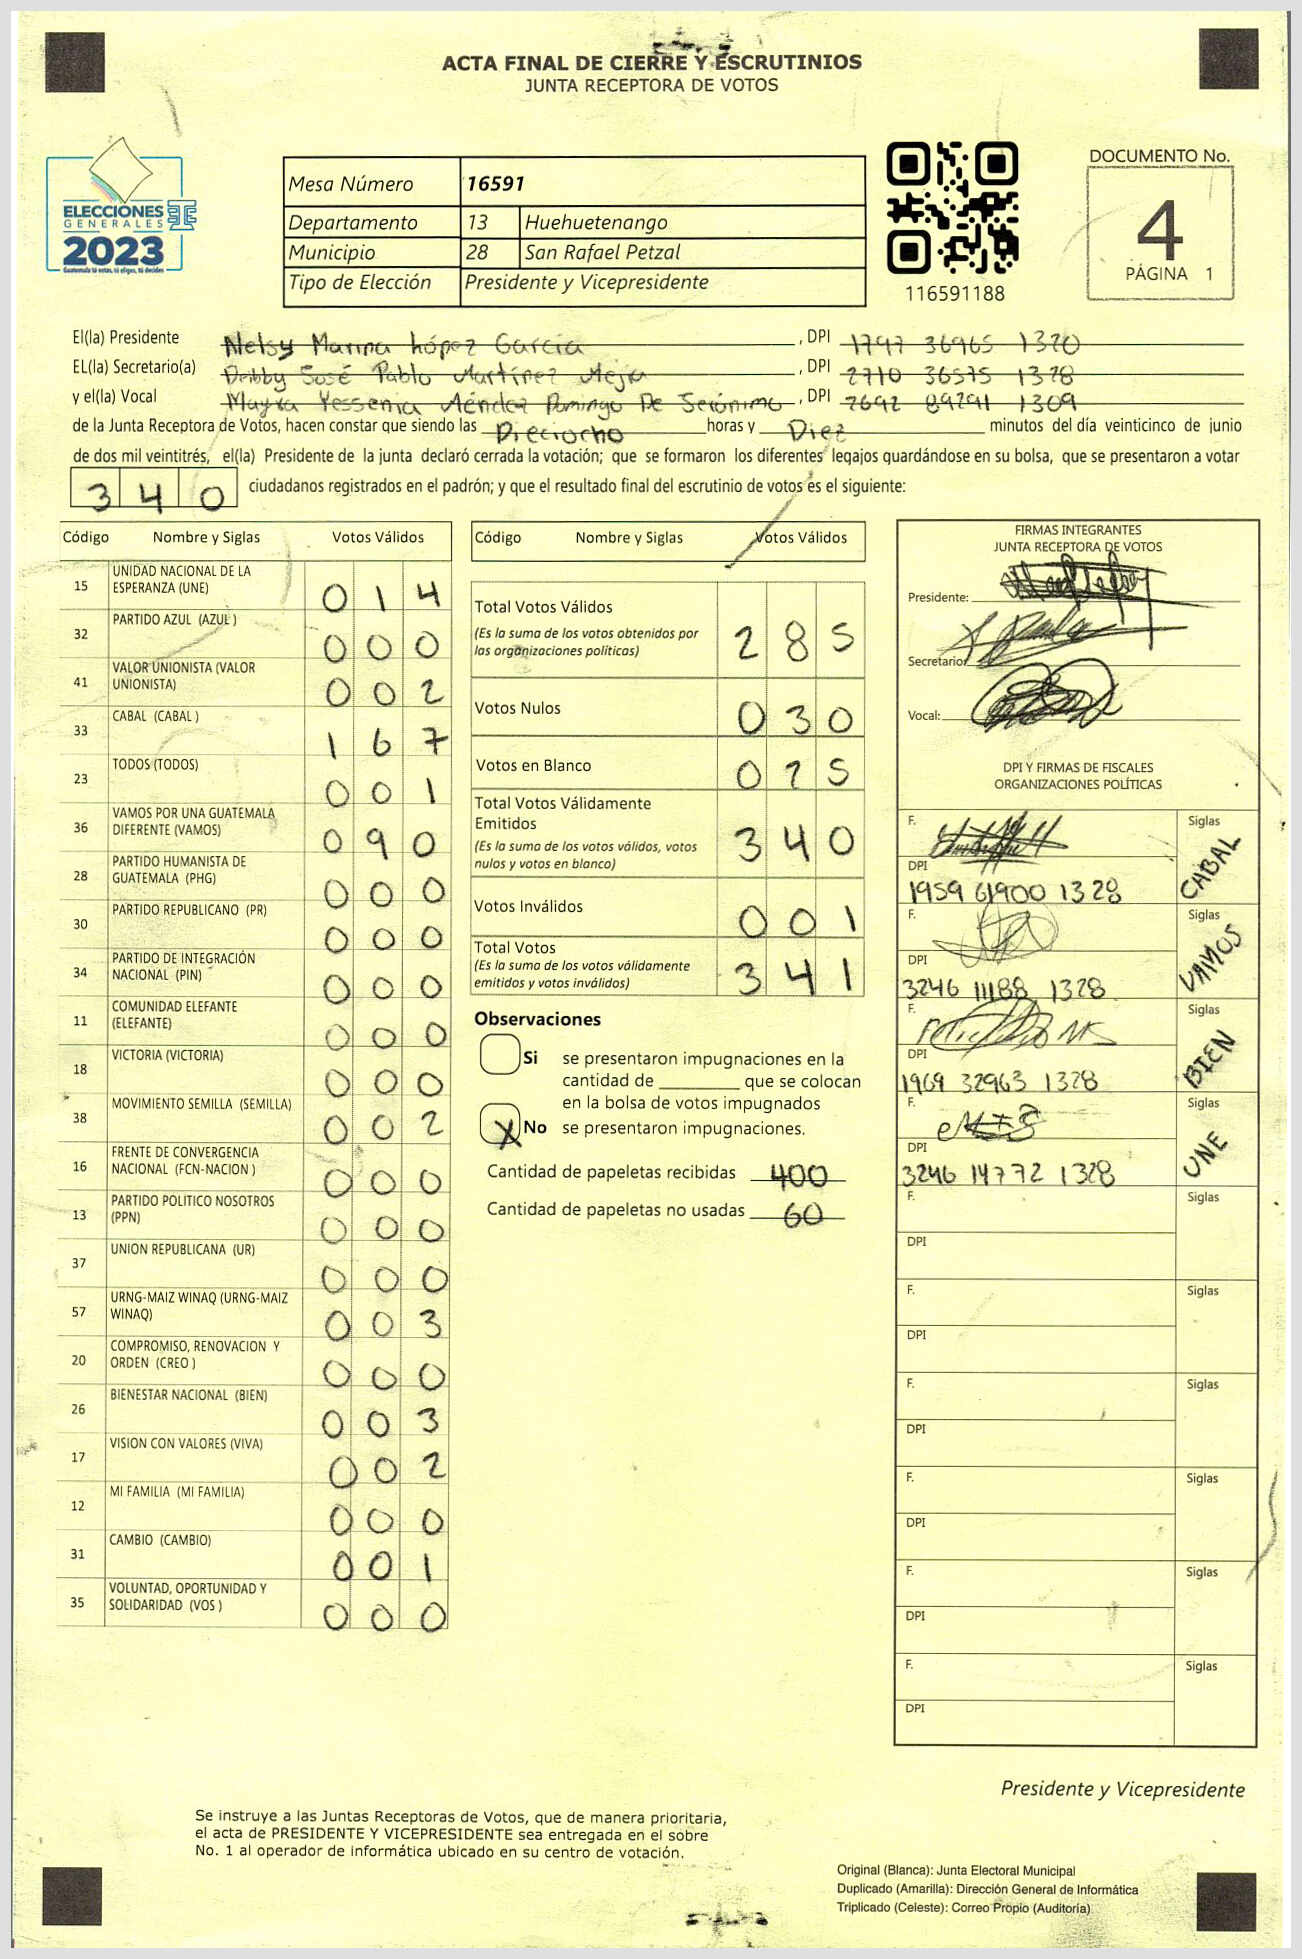 ACTA FINAL DE CIERRE Y ESCRUTINIOS
JUNTA RECEPTORA DE VOTOS
ELECCIONES
GENERALES
2023
Guatemala tú estás, tú eliges, tú decides
Mesa Número 16591
Departamento 13 Huehuetenango
Municipio 28 San Rafael Petzal
Tipo de Elección Presidente y Vicepresidente
116591188
DOCUMENTO No.
4
PÁGINA 1
El(la) Presidente Nelsy Marina López García, DPI 1797 36965 1320
EL(la) Secretario(a) Deibby José Pablo Martínez Mejía, DPI 2710 36575 1328
y el(la) Vocal Mayra Yessenia Méndez Domingo De Jerónimo, DPI 2692 89291 1309
de la Junta Receptora de Votos, hacen constar que siendo las Dieciocho horas y Diez minutos del día veinticinco de junio
de dos mil veintitrés, el(la) Presidente de la junta declaró cerrada la votación; que se formaron los diferentes legajos guardándose en su bolsa, que se presentaron a votar
340 ciudadanos registrados en el padrón; y que el resultado final del escrutinio de votos es el siguiente:
Código Nombre y Siglas Votos Válidos
15 UNIDAD NACIONAL DE LA ESPERANZA (UNE) 014
32 PARTIDO AZUL (AZUL ) 000
41 VALOR UNIONISTA (VALOR UNIONISTA) 002
33 CABAL (CABAL ) 167
23 TODOS (TODOS) 001
36 VAMOS POR UNA GUATEMALA DIFERENTE (VAMOS) 090
28 PARTIDO HUMANISTA DE GUATEMALA (PHG) 000
30 PARTIDO REPUBLICANO (PR) 000
34 PARTIDO DE INTEGRACIÓN NACIONAL (PIN) 000
11 COMUNIDAD ELEFANTE (ELEFANTE) 000
18 VICTORIA (VICTORIA) 000
38 MOVIMIENTO SEMILLA (SEMILLA) 002
16 FRENTE DE CONVERGENCIA NACIONAL (FCN-NACION ) 000
13 PARTIDO POLITICO NOSOTROS (PPN) 000
37 UNION REPUBLICANA (UR) 000
57 URNG-MAIZ WINAQ (URNG-MAIZ WINAQ) 003
20 COMPROMISO, RENOVACION Y ORDEN (CREO ) 000
26 BIENESTAR NACIONAL (BIEN) 003
17 VISION CON VALORES (VIVA) 002
12 MI FAMILIA (MI FAMILIA) 000
31 CAMBIO (CAMBIO) 001
35 VOLUNTAD, OPORTUNIDAD Y SOLIDARIDAD (VOS ) 000
Código Nombre y Siglas Votos Válidos
Total Votos Válidos 285
(Es la suma de los votos obtenidos por
las organizaciones políticas)
Votos Nulos 030
Votos en Blanco 025
Total Votos Válidamente
Emitidos 340
(Es la suma de los votos válidos, votos
nulos y votos en blanco)
Votos Inválidos 001
Total Votos 341
(Es la suma de los votos válidamente
emitidos y votos inválidos)
Observaciones
Si se presentaron impugnaciones en la
cantidad de ________ que se colocan
en la bolsa de votos impugnados
X No se presentaron impugnaciones.
Cantidad de papeletas recibidas 400
Cantidad de papeletas no usadas 60
FIRMAS INTEGRANTES
JUNTA RECEPTORA DE VOTOS
Presidente:
Secretario:
Vocal:
DPI Y FIRMAS DE FISCALES
ORGANIZACIONES POLÍTICAS
F. Siglas CABAL
DPI 1959 61900 1328
F. Siglas VAMOS
DPI 3246 11188 1328
F. Siglas BIEN
DPI 1969 32963 1328
F. Siglas UNE
DPI 3246 14772 1328
F. Siglas
DPI
F. Siglas
DPI
F. Siglas
DPI
F. Siglas
DPI
F. Siglas
DPI
F. Siglas
DPI
Presidente y Vicepresidente
Se instruye a las Juntas Receptoras de Votos, que de manera prioritaria,
el acta de PRESIDENTE Y VICEPRESIDENTE sea entregada en el sobre
No. 1 al operador de informática ubicado en su centro de votación.
Original (Blanca): Junta Electoral Municipal
Duplicado (Amarilla): Dirección General de Informática
Triplicado (Celeste): Correo Propio (Auditoría)